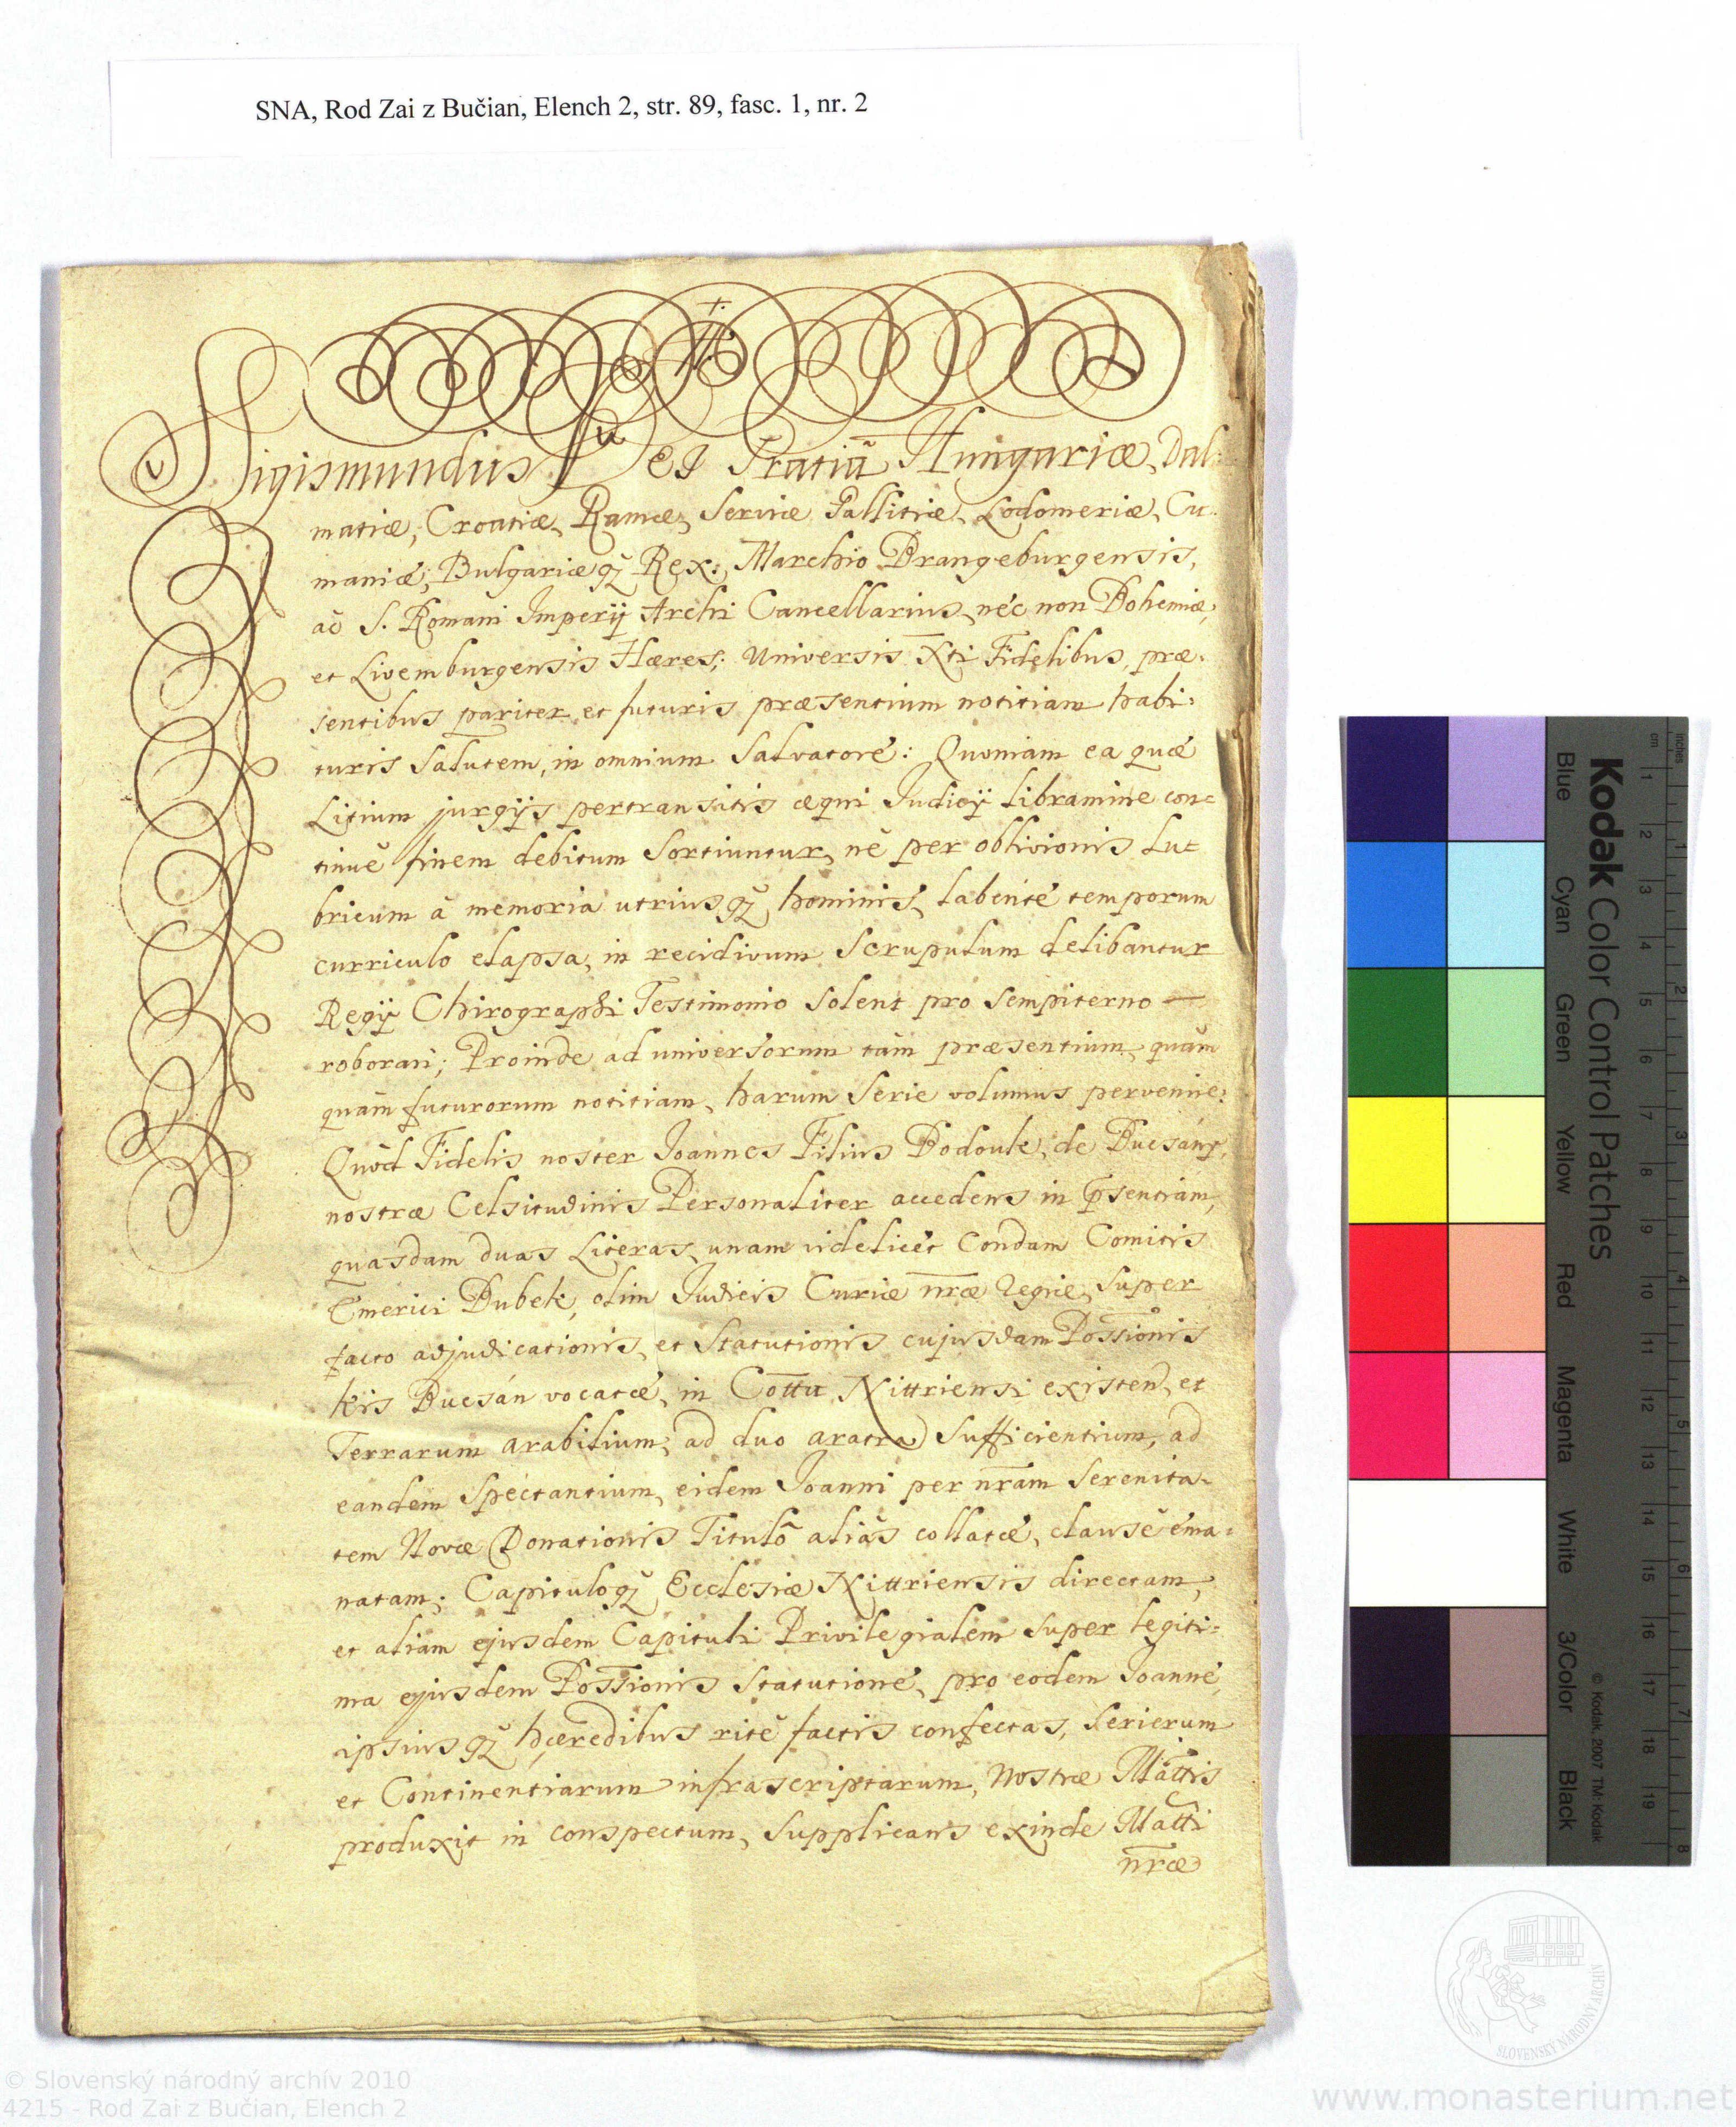 SNA, Rod Zai z Bučian, Elench 2, str. 89, fasc. 1, nr. 2
Sigismundus Dei Gratiã Hungariæ, Dal:
matiæ, Croatiæ, Ramæ, Serviæ Gallitiæ, Lodomeriæ, Cu:
maniæ, Bulgariæq̃ Rex: Marchio Brangeburgensis,
ac̃ S. Romani Imperij Archi Cancellarius, nec non Bohemiæ,
et Livemburgensis Hæres; Universis Xti Fidelibus, præ:
sentibus pariter et futuris præsentium notitiam habi:
turis Salutem, in omnium Salvatoré: Quoniam ea quæ
Litium jurgijs pertransitis æqui Judicij Libramine con=
tinuè finem debitum Sortiuntur, nè per oblivionis Lu=
bricum à memoria utriusq̃ hominis, Labente temporum
curriculo elapsa, in recidivum Scrupulum delibantur
Regij Chirographi Testimonio Solent pro Sempiterno —
roborari; Proinde ad universorum tàm præsentium, quàm
quàm futurorum notitiam, harum Serie volumus pervenire:
Quòd Fidelis noster Joannes Filius Bodoule, de Bucsány,
nostræ Celsitudinis Personaliter accedens in p̃sentiam,
quasdam duas Literas, unam videlicèt Condam Comitis
Emerici Bubek, olim Judicis Curiæ nr̃æ Regiæ, Super
facto adjudicationis, et Statutionis cujusdam Pos̃sionis
Kis Bucsán vocatæ, in Cottu Nittriensi existen, et
Terrarum arabilium, ad duo aratra Sufficientium, ad
eandem Spectantium, eidem Joanni per nr̃am Serenita:
tem Novæ Donationis Titulo aliàs collatæ, clausè ema:
natam; Capituloq̃ Ecclesiæ Nittriensis directam,
et aliam ejusdem Capituli Privilegialem Super legiti=
ma ejusdem Pos̃sionis Statutione, pro eodem Joanne,
ipsiusq̃ hæredibus ritè factis confectas, Serierum
et Continentiarum infrascriptarum, Nostræ Mattis
produxit in conspectum, Supplicans exinde Matti
nr̃æ
Kodak Color Control Patches
Blue
Cyan
Green
Yellow
Red
Magenta
White
3/Color
Black
© Kodak, 2007 TM: Kodak
inches
cm
1 2 3 4 5 6 7 8 9 10 11 12 13 14 15 16 17 18 19
1 2 3 4 5 6 7 8
SLOVENSKÝ NÁRODNÝ ARCHÍV
© Slovenský národný archív 2010
4215 - Rod Zai z Bučian, Elench 2
www.monasterium.net